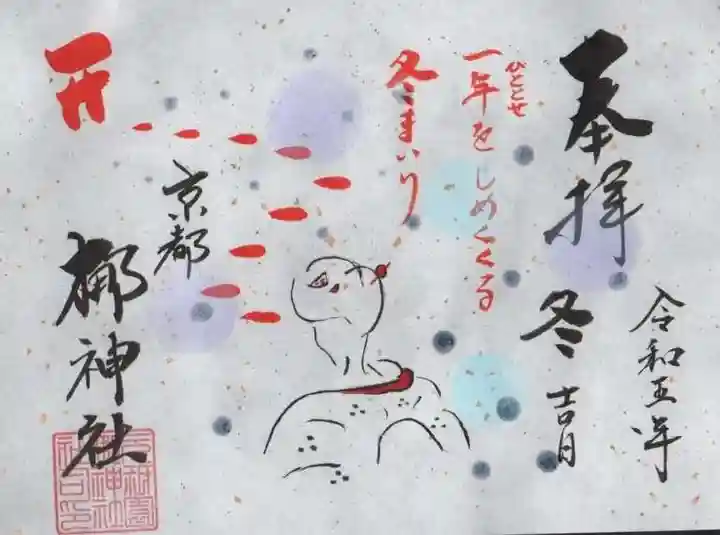 奉拝
冬
吉日
令和五年
一年をしめくくる
ひととせ
冬まいり
京都
梛神社